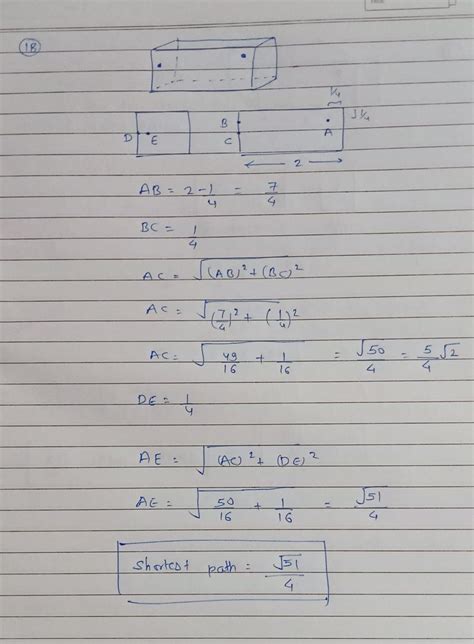 1B
1/4
B
A
1/4
D
E
C
2
AB = 2 - 1/4 = 7/4
BC = 1/4
AC = √(AB)² + (BC)²
AC = √(7/4)² + (1/4)²
AC = √49/16 + 1/16 = √50/4 = 5/4 √2
DE = 1/4
AE = √(AC)² + (DE)²
AE = √50/16 + 1/16 = √51/4
Shortest path = √51/4